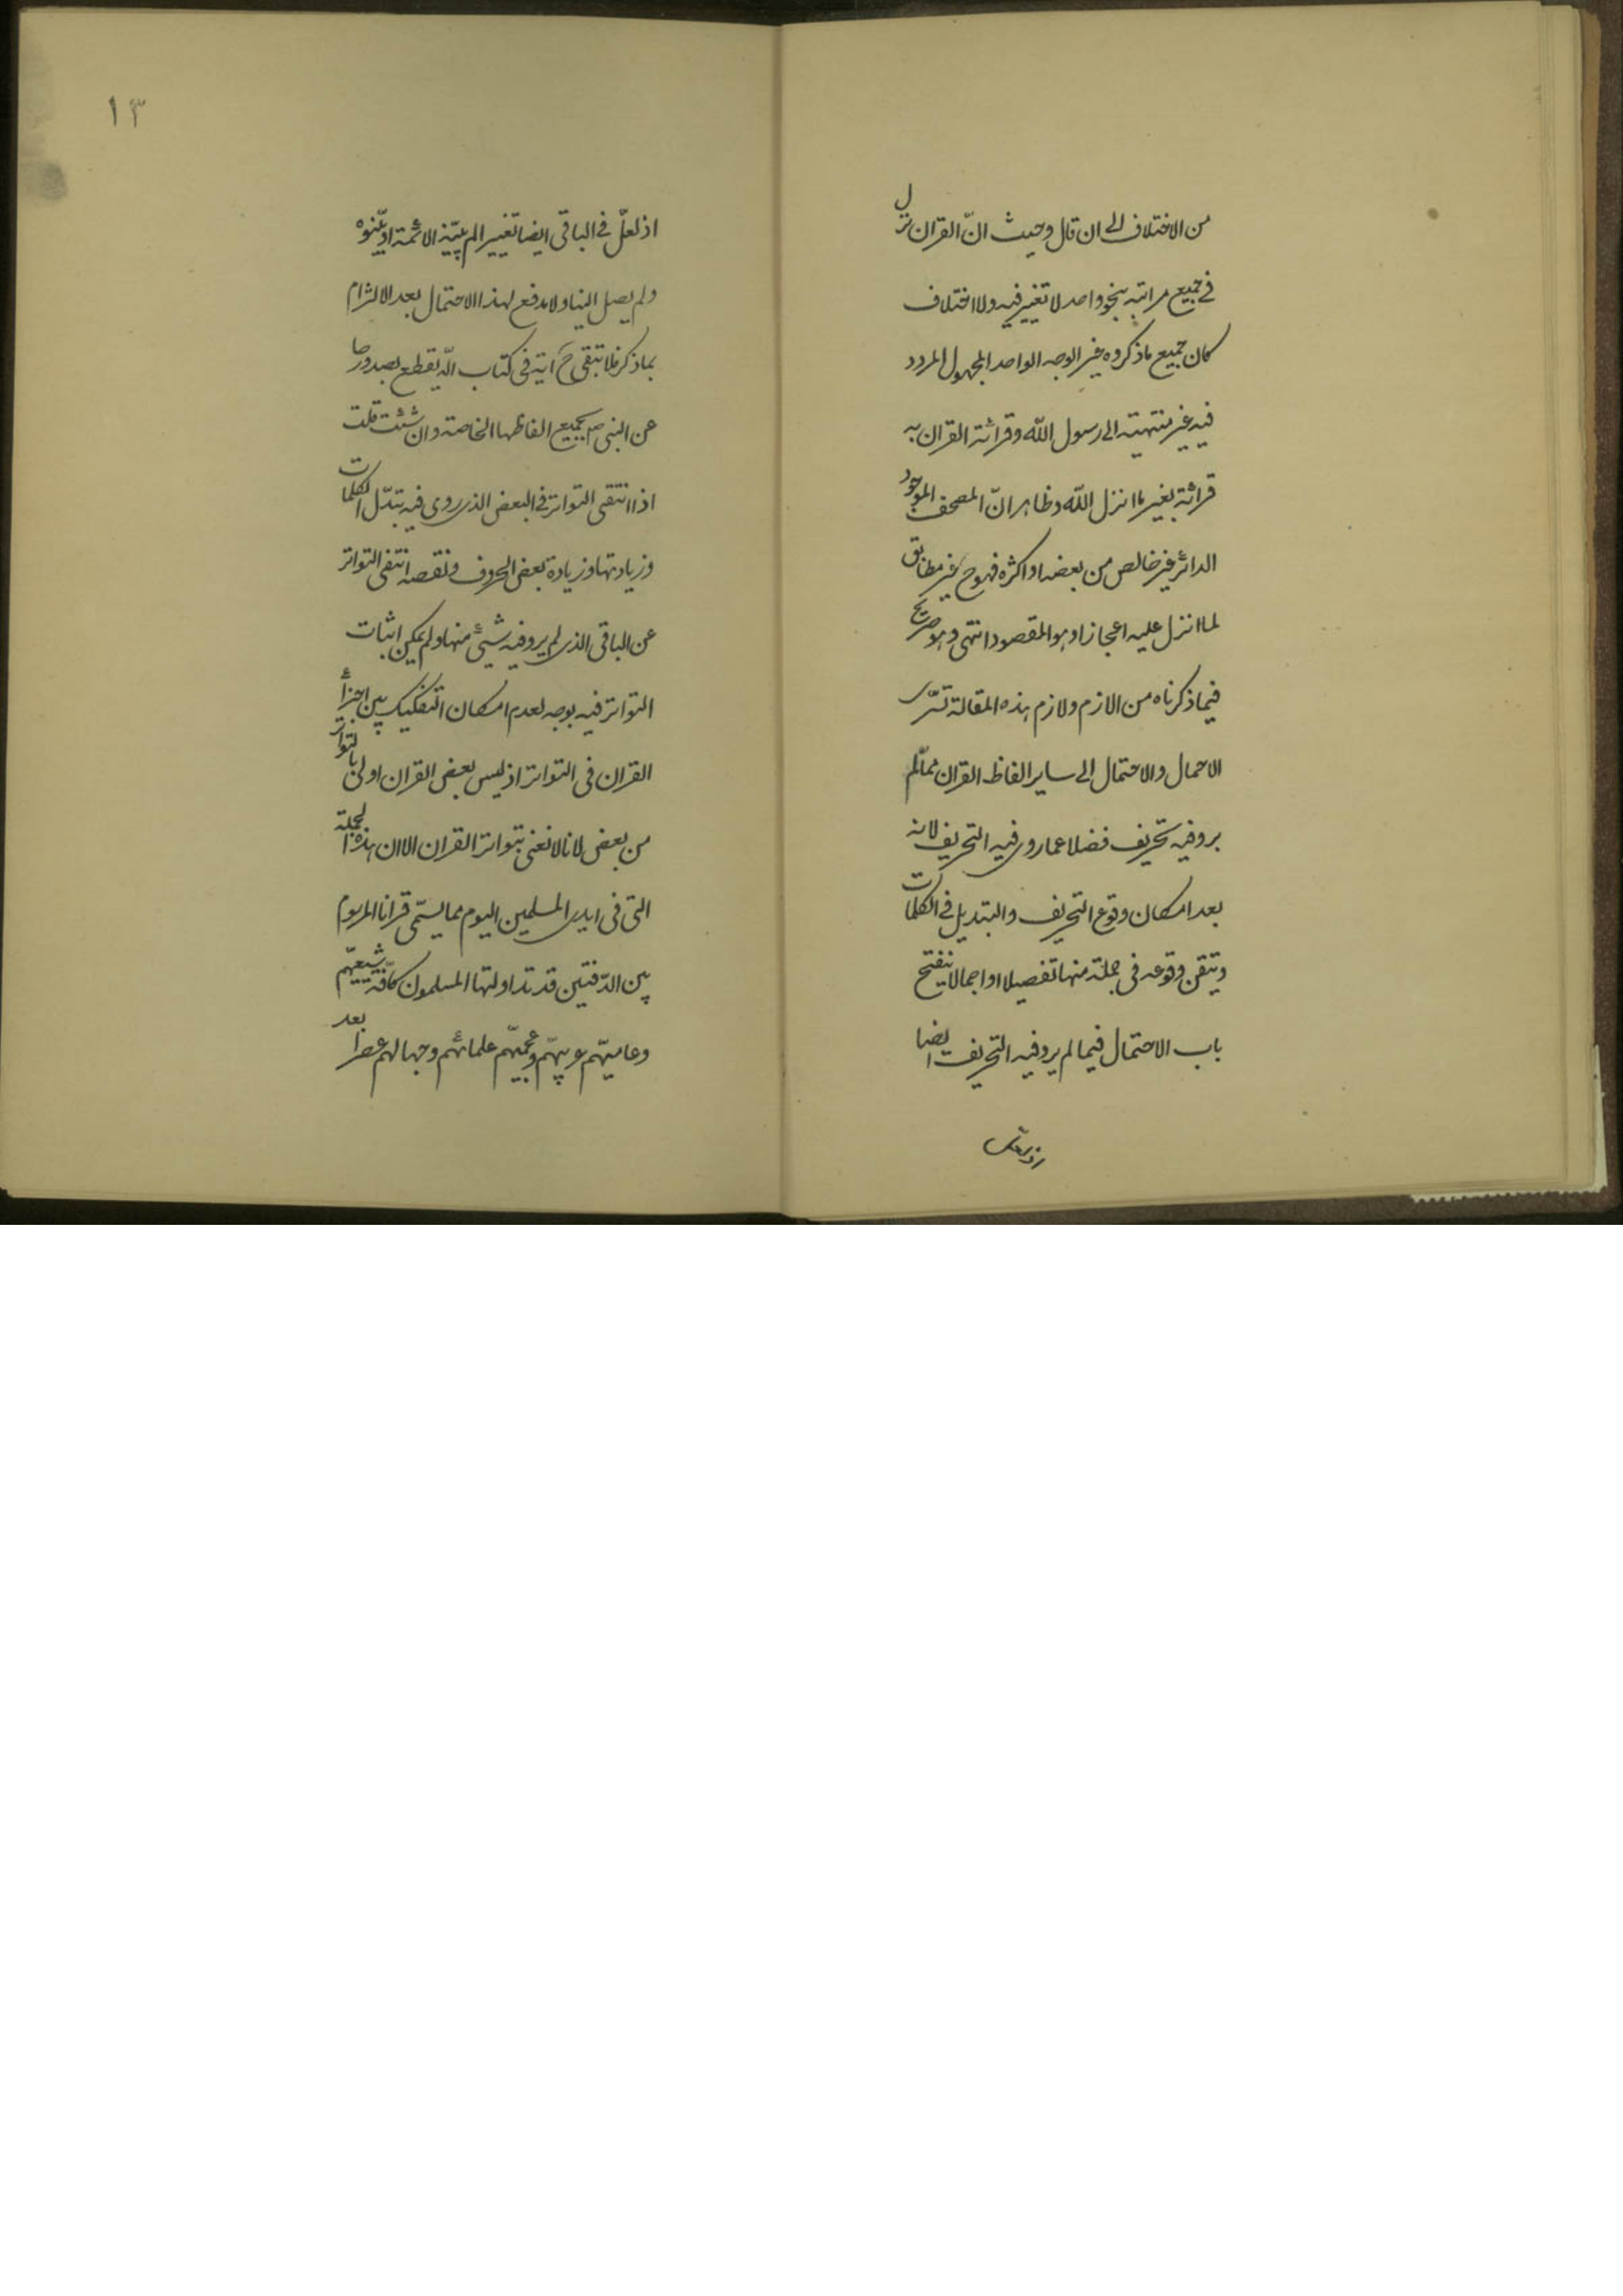 من الاختلاف الى ان قال وحيث انّ القران نزل
فى جميع مراتبه بنحو واحد لا تغيير فيه ولا اختلاف
كان جميع ما ذكروه غير الوجه الواحد المجهول المردد
فيه غير منتهية الى رسول اللّه وقرائة القران به
قرائة بغير ما انزل اللّه وظاهر انّ المصحف الموجود
الدائر غير خالص من بعضه او اكثره فهو ح غير مطابق
لما انزل عليه اعجازا وهو المقصود انتهى وهو صريح
فيما ذكرناه من الازم ولازم هذه المقالة تسرّى
الاحمال والاحتمال الى ساير الفاظ القران ممّا لم
يرو فيه تحريف فضلا عما روى فيه التحريف لانه
بعد امكان وقوع التحريف والتبديل فى الكلمات
وتيقن وقوعه فى جملة منها تفصيلا او اجمالا ينفتح
باب الاحتمال فيما لم يرو فيه التحريف ايضا
١٣
اذ لعلّ فى الباقى ايضا تغييرا لم يبيّنه الائمة او بيّنوه
ولم يصل الينا ولا مدفع لهذا الاحتمال بعد الالتزام
بما ذكر فلا تبقى ح اية فى كتاب اللّه يقطع بصدورها
عن النبى ص بجميع الفاظها الخاصة وان شئت قلت
اذا انتفى التواتر فى البعض الذى روى فيه تبدّل الكلمات
وزيادتها وزيادة بعض الحروف ونقصه انتفى التواتر
عن الباقى الذى لم يرو فيه شيئ منها ولم يمكن اثبات
التواتر فيه بوجه لعدم امكان التفكيك بين اجزأ
القران فى التواتر اذ ليس بعض القران اولى بالتواتر
من بعض لانا لا نعنى بتواتر القران الا ان هذه الجملة
التى فى ايدى المسلمين اليوم مما يسمّى قرانا المرسوم
بين الدّفتين قد تداولتها المسلمون كافّة شيعيّهم
وعاميّهم عربيّهم وعجميّهم علمائهم وجهالهم عصرا بعد